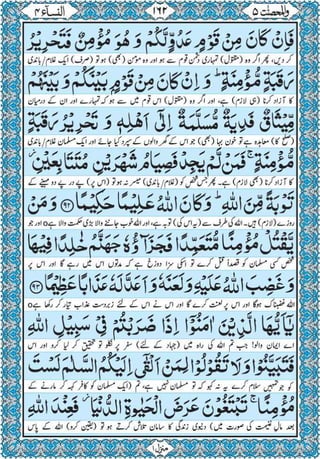 والمحصنت ٥ ١٦٢ النسآء ٤
فَاِنْ كَانَ مِنْ قَوْمٍ عَدُوٍّ لَّكُمْ وَهُوَ مُؤْمِنٌ فَتَحْرِيْرُ
کر دیں، پھر اگر وہ (مقتول) تمہاری دشمن قوم سے ہو اور وہ مؤمن (بھی) ہو تو (صرف) ایک غلام/باندی
رَقَبَةٍ مُّؤْمِنَةٍ ؕ وَ اِنْ كَانَ مِنْ قَوْمٍۭ بَيْنَكُمْ وَ بَيْنَهُمْ
کا آزاد کرنا (ہی لازم) ہے، اور اگر وہ (مقتول) اس قوم میں سے ہو کہ تمہارے اور ان کے درمیان
مِّيْثَاقٌ فَدِيَةٌ مُّسَلَّمَةٌ اِلٰۤى اَهْلِهٖ وَ تَحْرِيْرُ رَقَبَةٍ
(صلح کا) معاہدہ ہے تو خون بہا (بھی) جو اس کے گھر والوں کے سپرد کیا جائے اور ایک مسلمان غلام/باندی
مُّؤْمِنَةٍ ۚ فَمَنْ لَّمْ يَجِدْ فَصِيَامُ شَهْرَيْنِ مُتَتَابِعَيْنِ ؗ
کا آزاد کرنا (بھی لازم) ہے۔ پھر جس شخص کو (غلام/باندی) میسر نہ ہو تو (اس پر) پے در پے دو مہینے کے
تَوْبَةً مِّنَ اللّٰهِ ؕ وَكَانَ اللّٰهُ عَلِيْمًا حَكِيْمًا ﴿٩٢﴾ وَمَنْ
روزے (لازم) ہیں۔ اللہ کی طرف سے (یہ اس کی) توبہ ہے، اور اللہ خوب جاننے والا بڑی حکمت والا ہےo اور جو
يَّقْتُلْ مُؤْمِنًا مُّتَعَمِّدًا فَجَزَآؤُهٗ جَهَنَّمُ خٰلِدًا فِيْهَا
شخص کسی مسلمان کو قصداً قتل کرے تو اس کی سزا دوزخ ہے کہ مدتوں اس میں رہے گا اور اس پر
وَ غَضِبَ اللّٰهُ عَلَيْهِ وَلَعَنَهٗ وَاَعَدَّ لَهٗ عَذَابًا عَظِيْمًا ﴿٩٣﴾
اللہ غضبناک ہوگا اور اس پر لعنت کرے گا اور اس نے اس کے لئے زبردست عذاب تیار کر رکھا ہےo
يٰۤاَيُّهَا الَّذِيْنَ اٰمَنُوْۤا اِذَا ضَرَبْتُمْ فِيْ سَبِيْلِ اللّٰهِ
اے ایمان والو! جب تم اللہ کی راہ میں (جہاد کے لئے) سفر پر نکلو تو تحقیق کر لیا کرو اور اس
فَتَبَيَّنُوْا وَلَا تَقُوْلُوْا لِمَنْ اَلْقٰۤى اِلَيْكُمُ السَّلٰمَ لَسْتَ
کو جو تمہیں سلام کرے یہ نہ کہو کہ تو مسلمان نہیں ہے، تم (ایک مسلمان کو کافر کہہ کر مارنے کے
مُؤْمِنًا ۚ تَبْتَغُوْنَ عَرَضَ الْحَيٰوةِ الدُّنْيَا ؗ فَعِنْدَ اللّٰهِ
بعد مالِ غنیمت کی صورت میں) دنیوی زندگی کا سامان تلاش کرتے ہو تو (یقین کرو) اللہ کے پاس
منزل ١